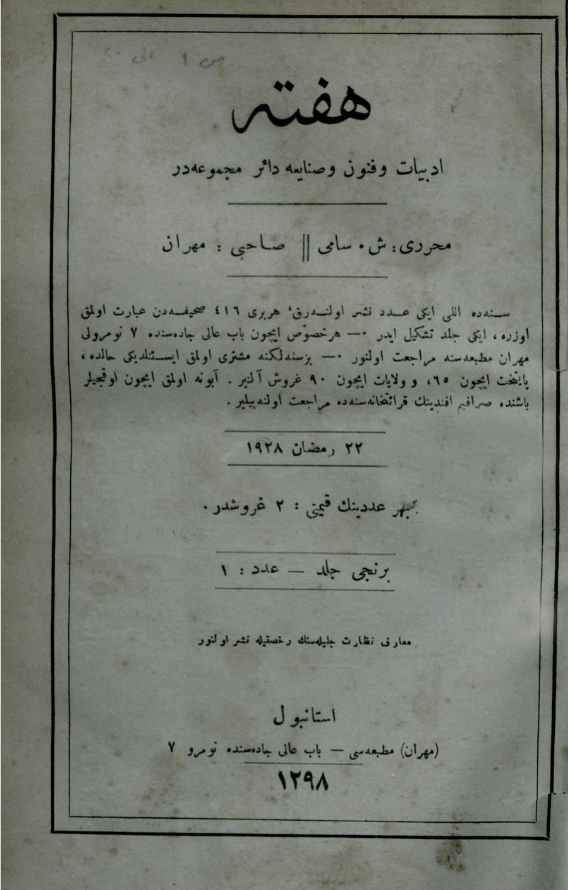 هفته
ادبیات و فنون و صنایعه دائر مجموعه‌در
محرری : ش . سامی || صاحبی : مهران
سنه‌ده اللی ایکی عدد نشر اولنه‌رق، هر بری ٤١٦ صحیفه‌دن عبارت اولمق
اوزره ، ایکی جلد تشکیل ایدر —٠ هر خصوص ایچون باب عالی جاده‌سنده ٧ نومرولی
مهران مطبعه‌سنه مراجعت اولنور —٠ بر سنه‌لکنه مشتری اولمق ایستنلدیکی حالده ،
پایتخت ایچون ٦٥، و ولایات ایچون ٩٠ غروش آلنیر . آبونه اولمق ایچون اوقجیلر
باشنده صرافیم افندینك قرائتخانه‌سنده مراجعت اولنه‌بیلیر .
٢٢ رمضان ١٩٢٨
بهر عددینك قیمتی : ٢ غروشدر .
برنجی جلد — عدد : ١
معارف نظارت جلیله‌سنك رخصتیله نشر اولنور
استانبول
(مهران) مطبعه‌سی — باب عالی جاده‌سنده نومرو ٧
١٢٩٨